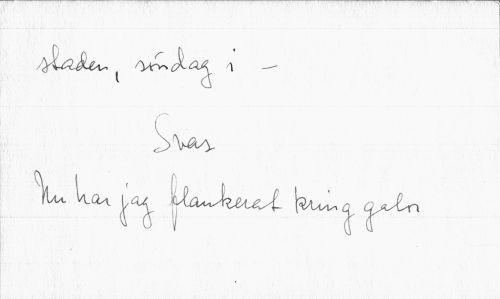 staden, söndag i –
Svas
Nu har jag flankerat kring gator